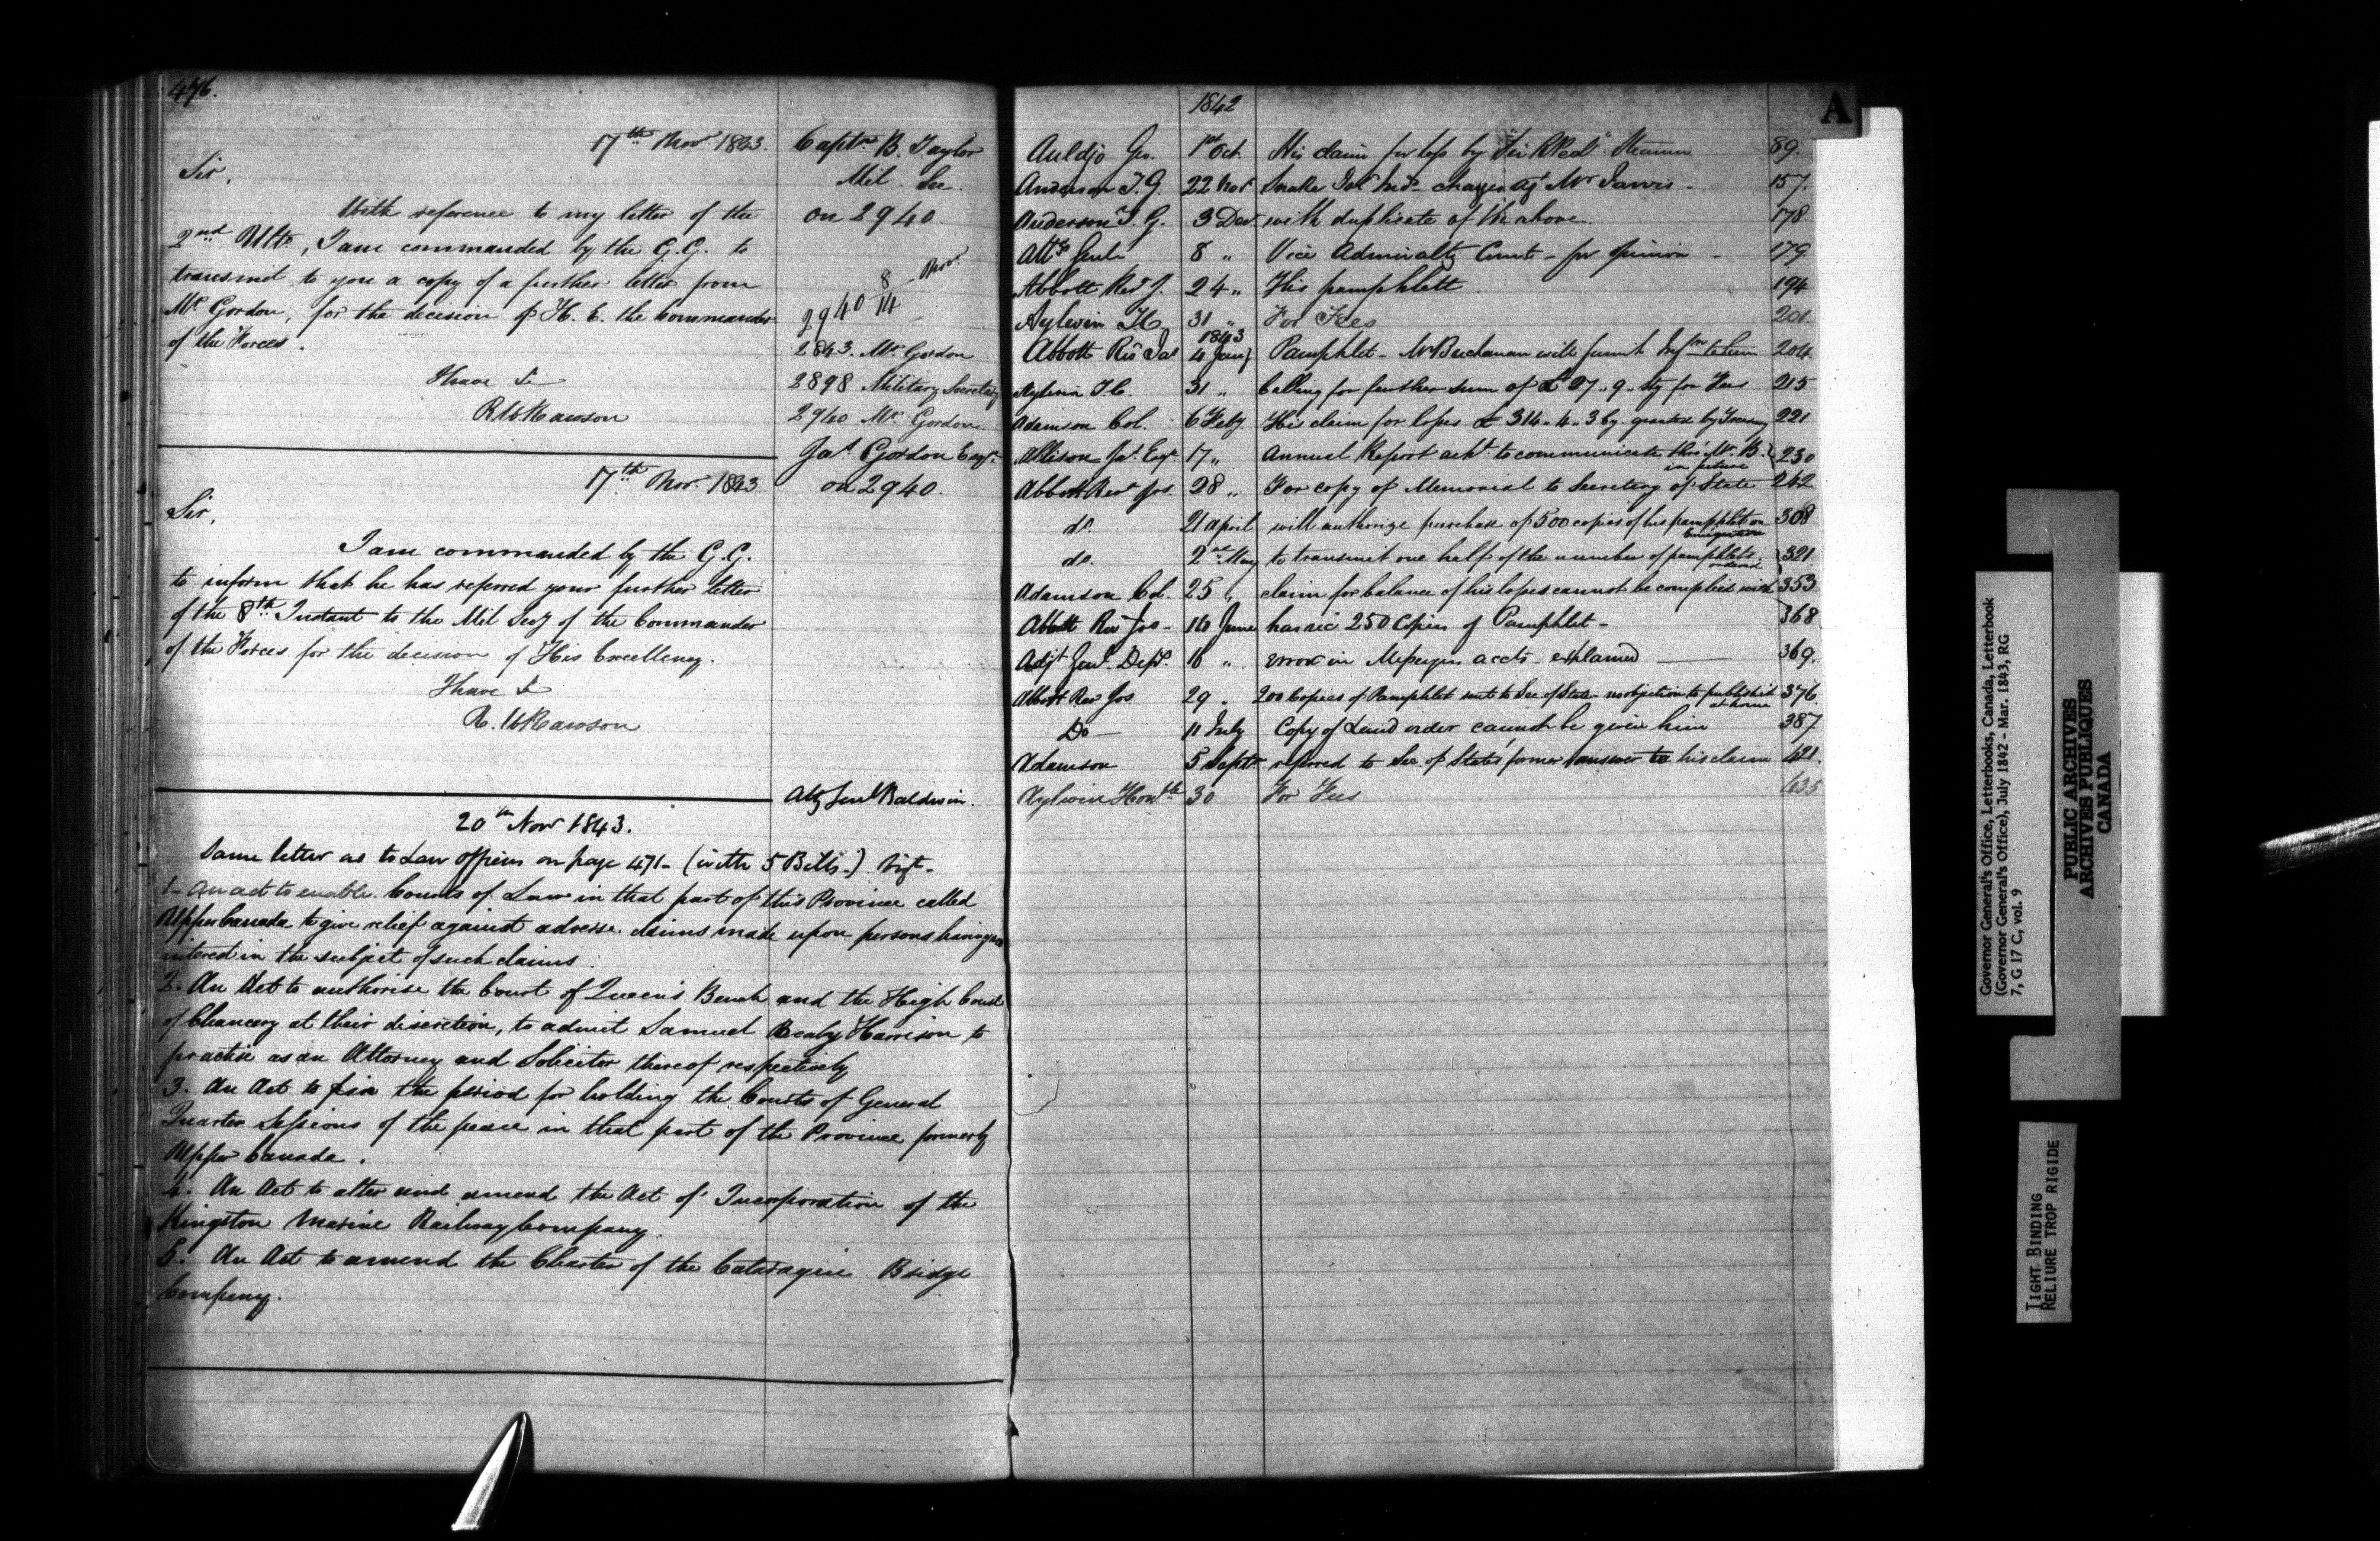 476.
17th Novr. 1843.
Captn. B. Taylor
Mil. Sec.
on 2940.
Sir,
With reference to my letter of the
2nd Ulto, I am commanded by the G.G. to
transmit to you a copy of a further letter from
Mr. Gordon, for the decision of H. E. the Commander
of the Forces.
I have &c
R W Rawson
2940 8/14 Novr.
2843. Mr. Gordon
2898 Military Secretary
2940 Mr. Gordon
17th Novr. 1843
Jas. Gordon Esqr.
on 2940.
Sir,
I am commanded by the G.G.
to inform that he has referred your further letter
of the 8th Instant to the Mil Secy of the Commander
of the Forces for the decision of His Excellency.
I have &c
R. W Rawson
Atty Genl Baldwin.
20th Novr 1843.
Same letter as to Law Officers on page 471 - (with 5 Bills.) vizt -
1 - An act to enable Courts of Law in that part of this Province called
Upper Canada to give relief against adverse claims made upon persons having no
interest in the subject of such claims.
2. An Act to authorise the Court of Queen's Bench and the High Court
of Chancery at their discretion, to admit Samuel Bealy Harrison to
practise as an Attorney and Solicitor thereof respectively
3. An Act to fix the period for holding the Courts of General
Quarter Sessions of the peace in that part of the Province formerly
Upper Canada.
4. An Act to alter and amend the Act of Incorporation of the
Kingston Marine Railway Company.
5. An Act to amend the Charter of the Cataraqui Bridge
Company.
A
1842
Auldjo Geo. 1st Oct. His claim for loss by Steamer 89.
Anderson T. G. 22 Novr Snake Isld Inds charges agt Mr Jarvis - 157.
Anderson T. G. 3 Decr with duplicate of the above. 178
Atty Genl 8 " Vice Admiralty Court - for opinion - 179
Abbott Revd J. 24 " His pamphlett. 194
Aylwin T.C. 31 " For Fees 201.
1843
Abbott Revd Jos 4 Jany Pamphlet - Mr Buchanan will furnish Infmn to him 204
Aylwin T.C. 31 " Calling for further sum of £27 " 9 " Stg for Fees 215
Adamson Col. 6 Feby. His claim for losses £ 314 " 4 " 3 Cy. granted by Treasury 221
Allison Jas. Esqr. 17 " Annual Report ackd. to communicate thro' Mr. B. in future 230
Abbott Revd Jos. 28 " For copy of Memorial to Secretary of State 242
do. 21 April will authorize purchase of 500 copies of his pamphlet on Emigration 308
do. 2nd May to transmit one half of the number of pamphlets ordered 321.
Adamson Col. 25 " claim for balance of his losses cannot be complied with 353
Abbott Revd Jos - 16 June has rec 250 Copies of Pamphlet - 368
Adjt Genl. Dept. 16 " error in Messengers accts explained 369.
Abbott Revd Jos 29 " 200 Copies of Pamphlet sent to Sec. of State - no objection to publish it at home 376.
Do - 11 July Copy of Land order cannot be given him 387
Adamson 5 Septr referred to Sec. of State's former answer to his claim 421.
Aylwin Honble 30 For Fees 435
Governor General's Office, Letterbooks, Canada, Letterbook
(Governor General's Office), July 1842 - Mar. 1843, RG
7, G 17 C, vol. 9
PUBLIC ARCHIVES
ARCHIVES PUBLIQUES
CANADA
TIGHT BINDING
RELIURE TROP RIGIDE